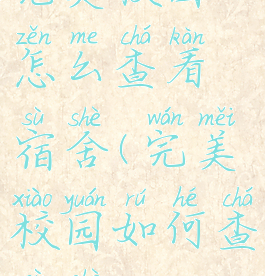 zěn me chá kàn
怎么查看
sù shè wán měi
宿舍(完美
xiào yuán rú hé chá
校园如何查